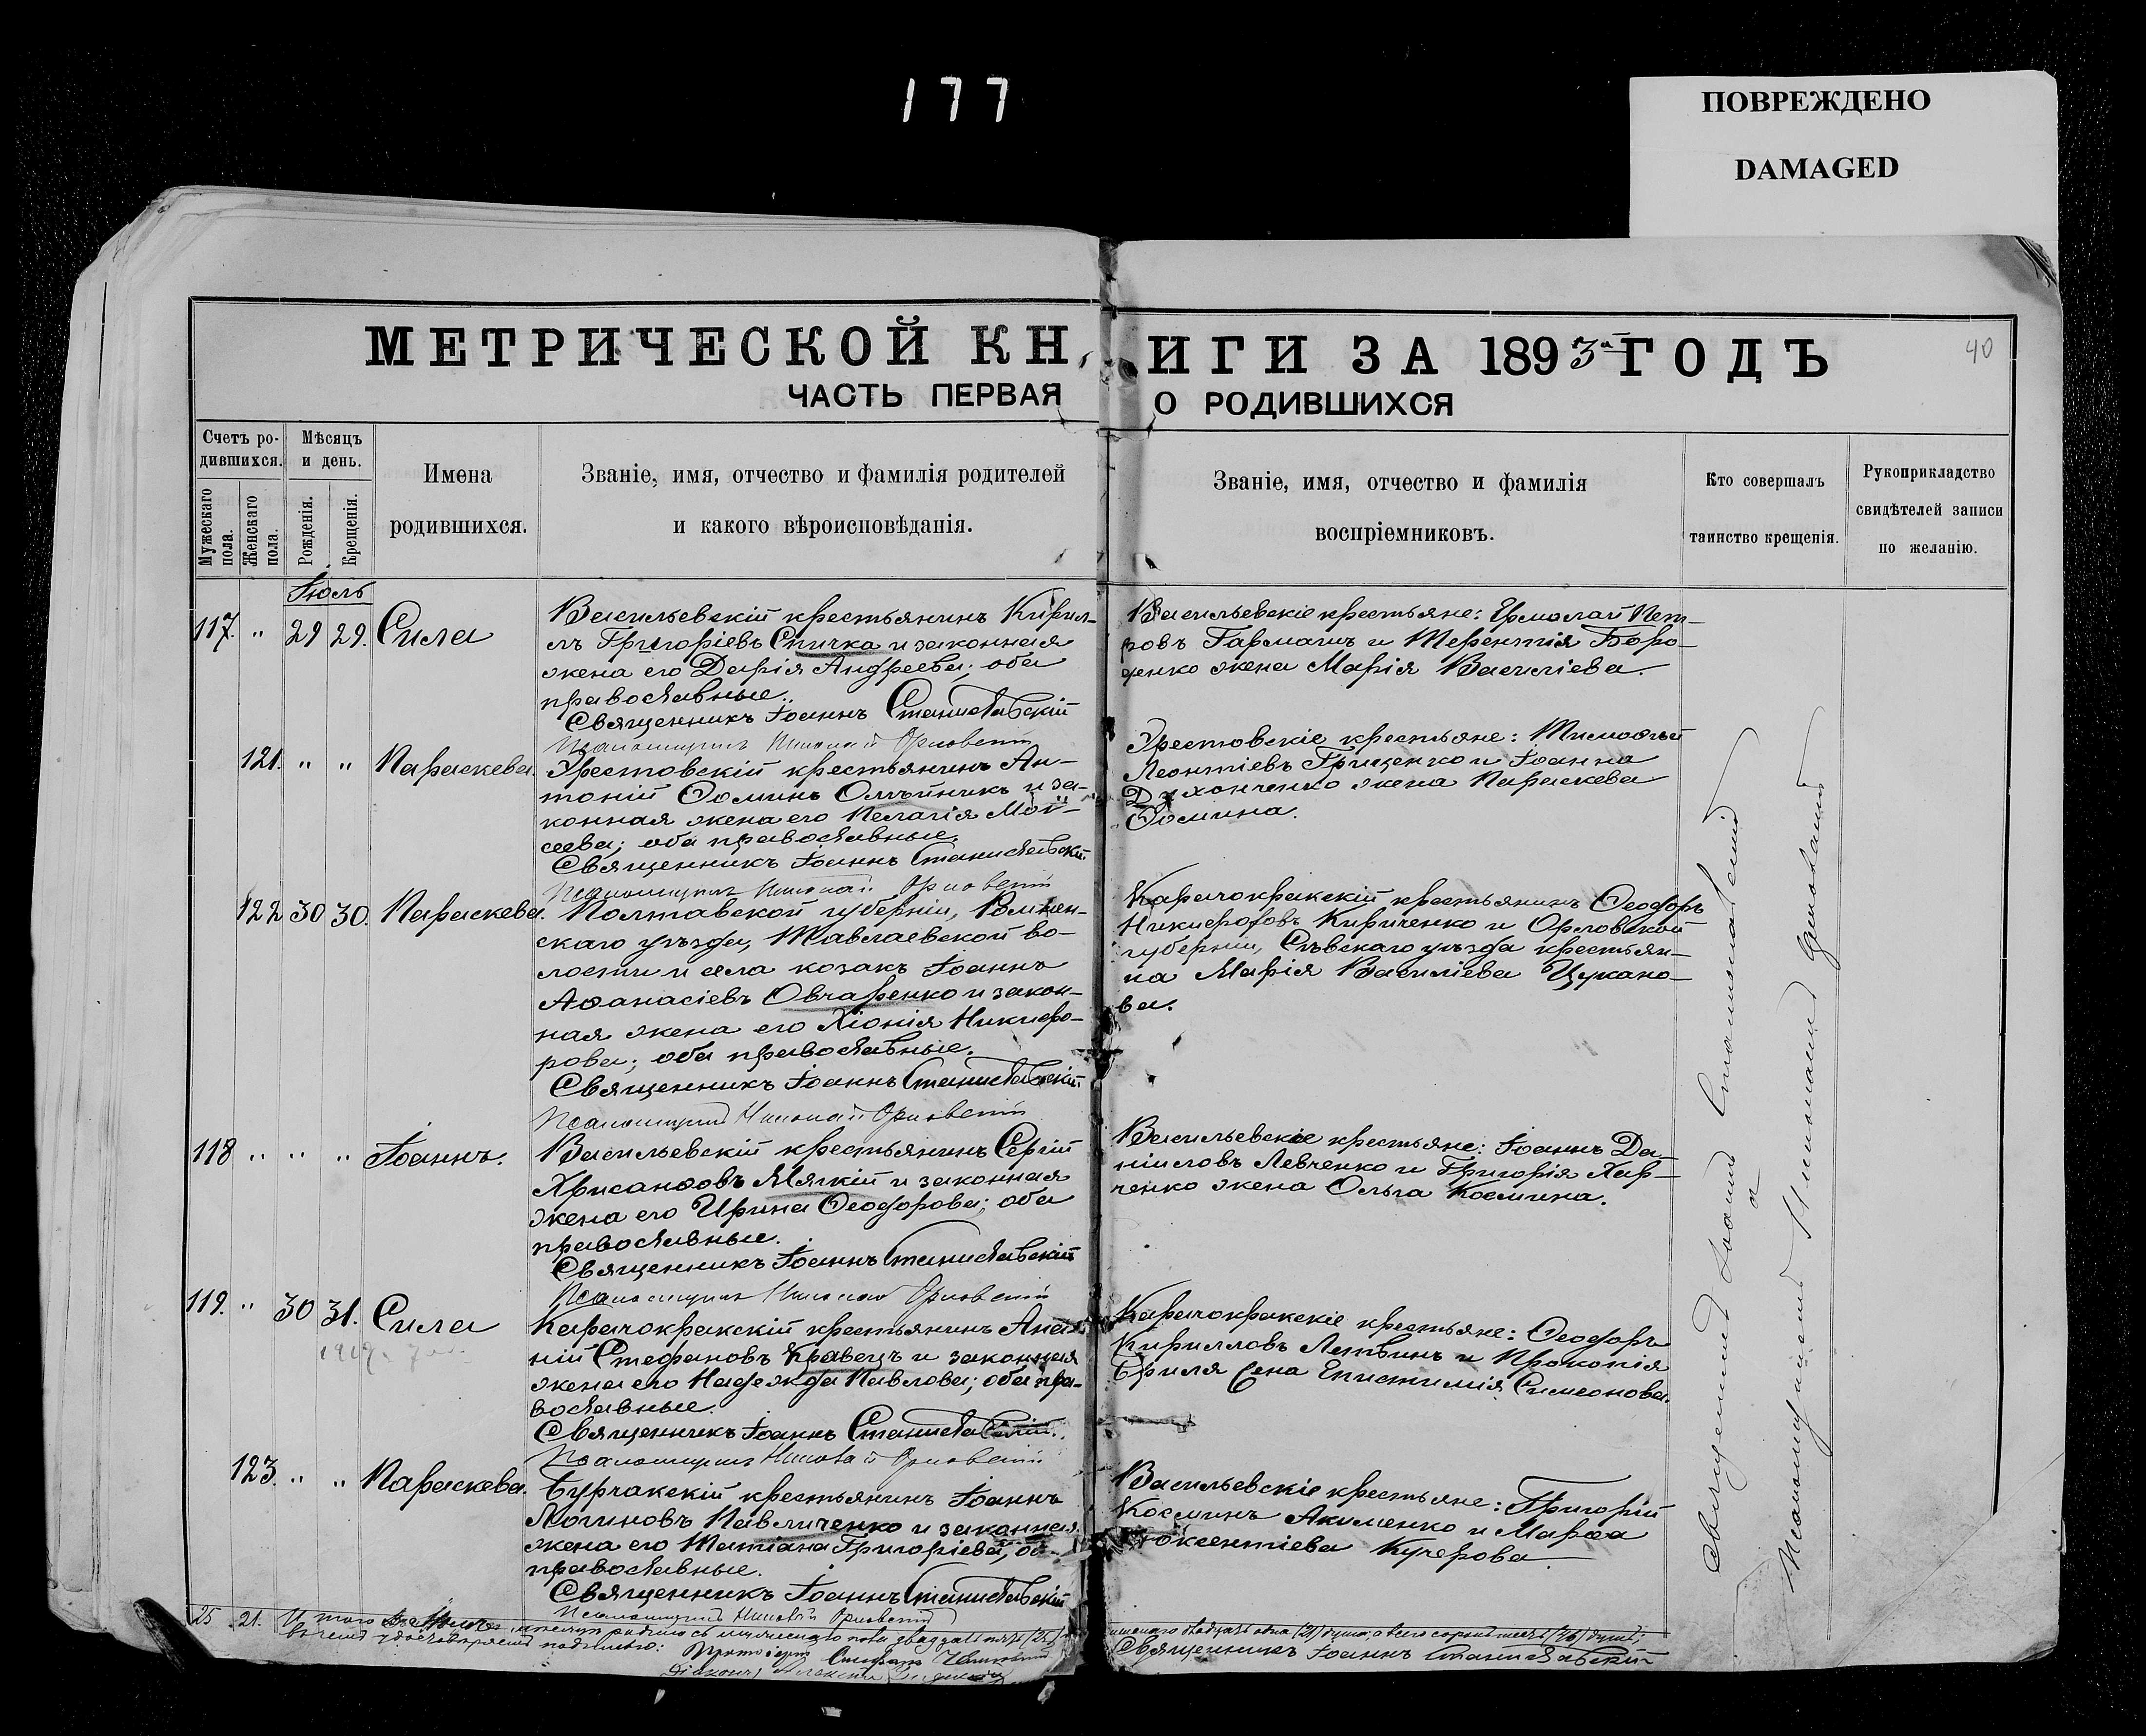 177
ПОВРЕЖДЕНО
DAMAGED
МЕТРИЧЕСКОЙ КНИГИ ЗА 1893й ГОДЪ
40
ЧАСТЬ ПЕРВАЯ О РОДИВШИХСЯ
Счетъ родившихся.
Мужескаго пола.
Женскаго пола.
Мѣсяцъ и день.
Рожденія.
Крещенія.
Имена
родившихся.
Званіе, имя, отчество и фамилія родителей
и какого вѣроисповѣданія.
Званіе, имя, отчество и фамилія
воспріемниковъ.
Кто совершалъ
таинство крещенія.
Рукоприкладство
свидѣтелей записи
по желанію.
Іюль
117. " 29 29. Сила
Васильевскій крестьянинъ Кирил-
лъ Григоріевъ Спичка и законная
жена его Дарія Андреева; оба
православные.
Священникъ Іоаннъ Станиславскій
Псаломщикъ Николай Орловскій
Васильевскіе крестьяне: Ермолай Пет-
ровъ Гармашъ и Терентія Боро-
денко жена Марія Василіева.
121. " " Параскева.
Эрестовскій крестьянинъ Ан-
тоній Ѳоминъ Олѣйникъ и за-
конная жена его Пелагія Мои-
сеева; оба православные.
Священникъ Іоаннъ Станиславскій
Псаломщикъ Николай Орловскій
Эрестовскіе крестьяне: Тимоѳей
Леонтіевъ Грищенко и Іоанна
Духонченко жена Параскева
Ѳомина.
122 30 30. Параскева.
Полтавской губерніи, Ромен-
скаго уѣзда, волости и села козакъ Іоаннъ
Аѳанасіевъ Овчаренко и закон-
ная жена его Хіонія Никифо-
рова; оба православные.
Священникъ Іоаннъ Станиславскій
Псаломщикъ Николай Орловскій
Карачокракскій крестьянинъ Ѳеодоръ
Никифоровъ Кириченко и Орловской
губерніи, Сѣвскаго уѣзда крестьян-
ка Марія Василіева Цукано-
ва.
118 " " " Іоаннъ.
Васильевскій крестьянинъ Сергій
Хрисанѳовъ Мягкій и законная
жена его Ирина Ѳеодорова; оба
православные.
Священникъ Іоаннъ Станиславскій
Псаломщикъ Николай Орловскій
Васильевскіе крестьяне: Іоаннъ Да-
ніиловъ Левченко и Григорія Хар-
ченко жена Ольга Космина.
119. " 30 31. Сила
Карачокракскій крестьянинъ Ана-
ній Стефановъ Кравецъ и законная
жена его Надежда Павлова; оба пра-
вославные.
Священникъ Іоаннъ Станиславскій
Псаломщикъ Николай Орловскій
Карачокракскіе крестьяне: Ѳеодоръ
Кирилловъ Летвинъ и Прокопія
жена Епистимія Симеонова.
123. " " Параскева.
Бурчакскій крестьянинъ Іоаннъ
Логиновъ Павличенко и законная
жена его Татіана Григоріева; об
православные.
Священникъ Іоаннъ Станиславскій
Псаломщикъ Николай Орловскій
Васильевскіе крестьяне: Григорій
Косминъ Акименко и Марѳа
Кучерова
Священникъ Іоаннъ Станиславскій
Псаломщикъ Николай Орловскій
25 21. Итого
Священникъ Іоаннъ Станиславскій